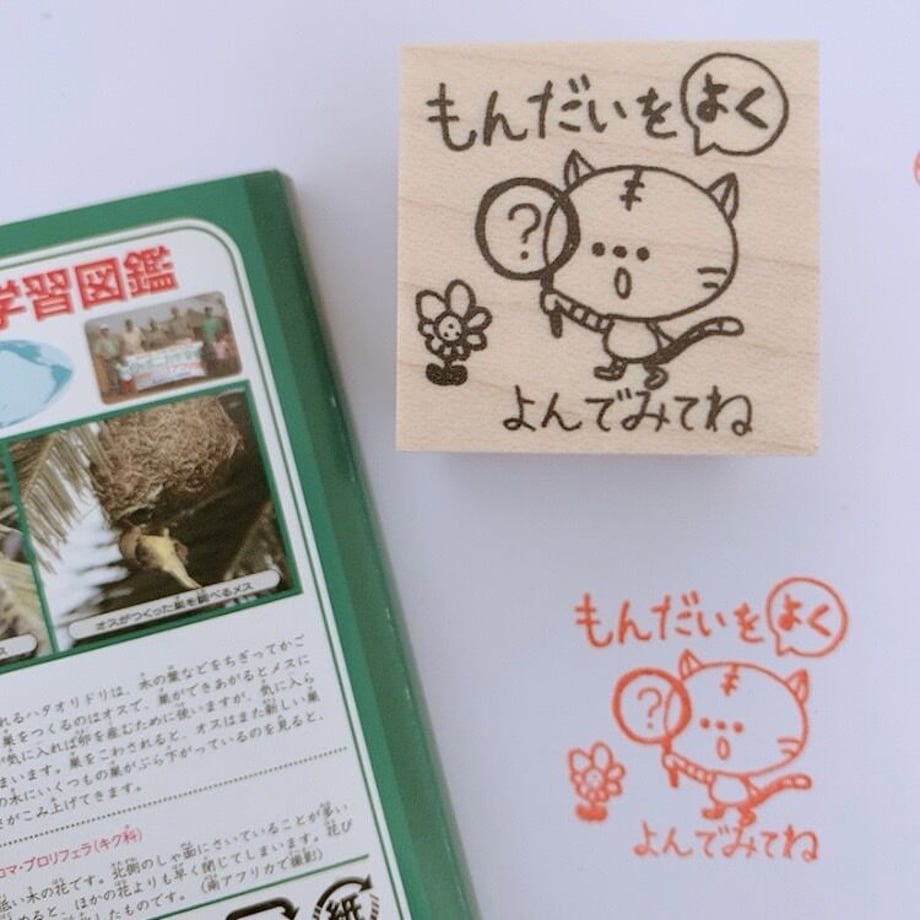 もんだいをよく
?
よんでみてね
学習図鑑
オスがつくった巣を調べるメス
れるハタオリドリは、木の葉などをちぎってかご
巣をつくるのはオスで、巣ができあがるとメスに
が気に入れば卵を産むために使いますが、気に入ら
まいます。巣をこわされると、オスはまた新しい巣
の木にいくつもの巣がぶら下がっているのを見ると、
さがこみ上げてきます。
コマ・プロリフェラ(キク科)
低い木の花です。北側のしゃ面にさいていることが多い
めると、ほかの花よりも早く閉じてしまいます。花び
したものです。(南アフリカで撮影)
紙
もんだいをよく
?
よんでみてね